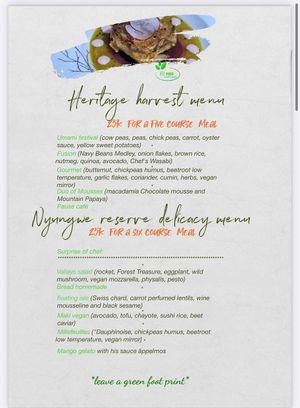 Heritage harvest menu
25K FOR A FIVE COURSE MEAL
Umami festival (cow peas, peas, chick peas, carrot, oyster
sauce, yellow sweet potatoes)
Fusion (Navy Beans Medley, onion flakes, brown rice,
nutmeg, quinoa, avocado, Chef's Wasabi)
Gourmet (butternut, chickpeas humus, beetroot low
temperature, garlic flakes, coriander, cumin, herbs, vegan
mirror)
Duo of Mousses (macadamia Chocolate mousse and
Mountain Papaya)
Pause café
Nyungwe reserve delicacy menu
25K FOR A SIX COURSE MEAL
Surprise of chef:
Valleys salad (rocket, Forest Treasure, eggplant, wild
mushroom, vegan mozzarella, physalis, pesto)
Bread homemade
floating isle (Swiss chard, carrot perfumed lentils, wine
mousseline and black sesame)
Maki vegan (avocado, tofu, chayote, sushi rice, beet
caviar)
Millefeuilles ("Dauphinoise, chickpeas humus, beetroot
low temperature, vegan mirror)
Mango gelato with his sauce äppelmos
"leave a green foot print"